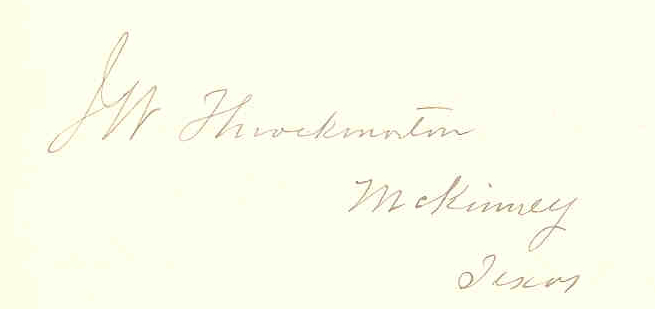 JW Throckmorton
McKinney
Texas